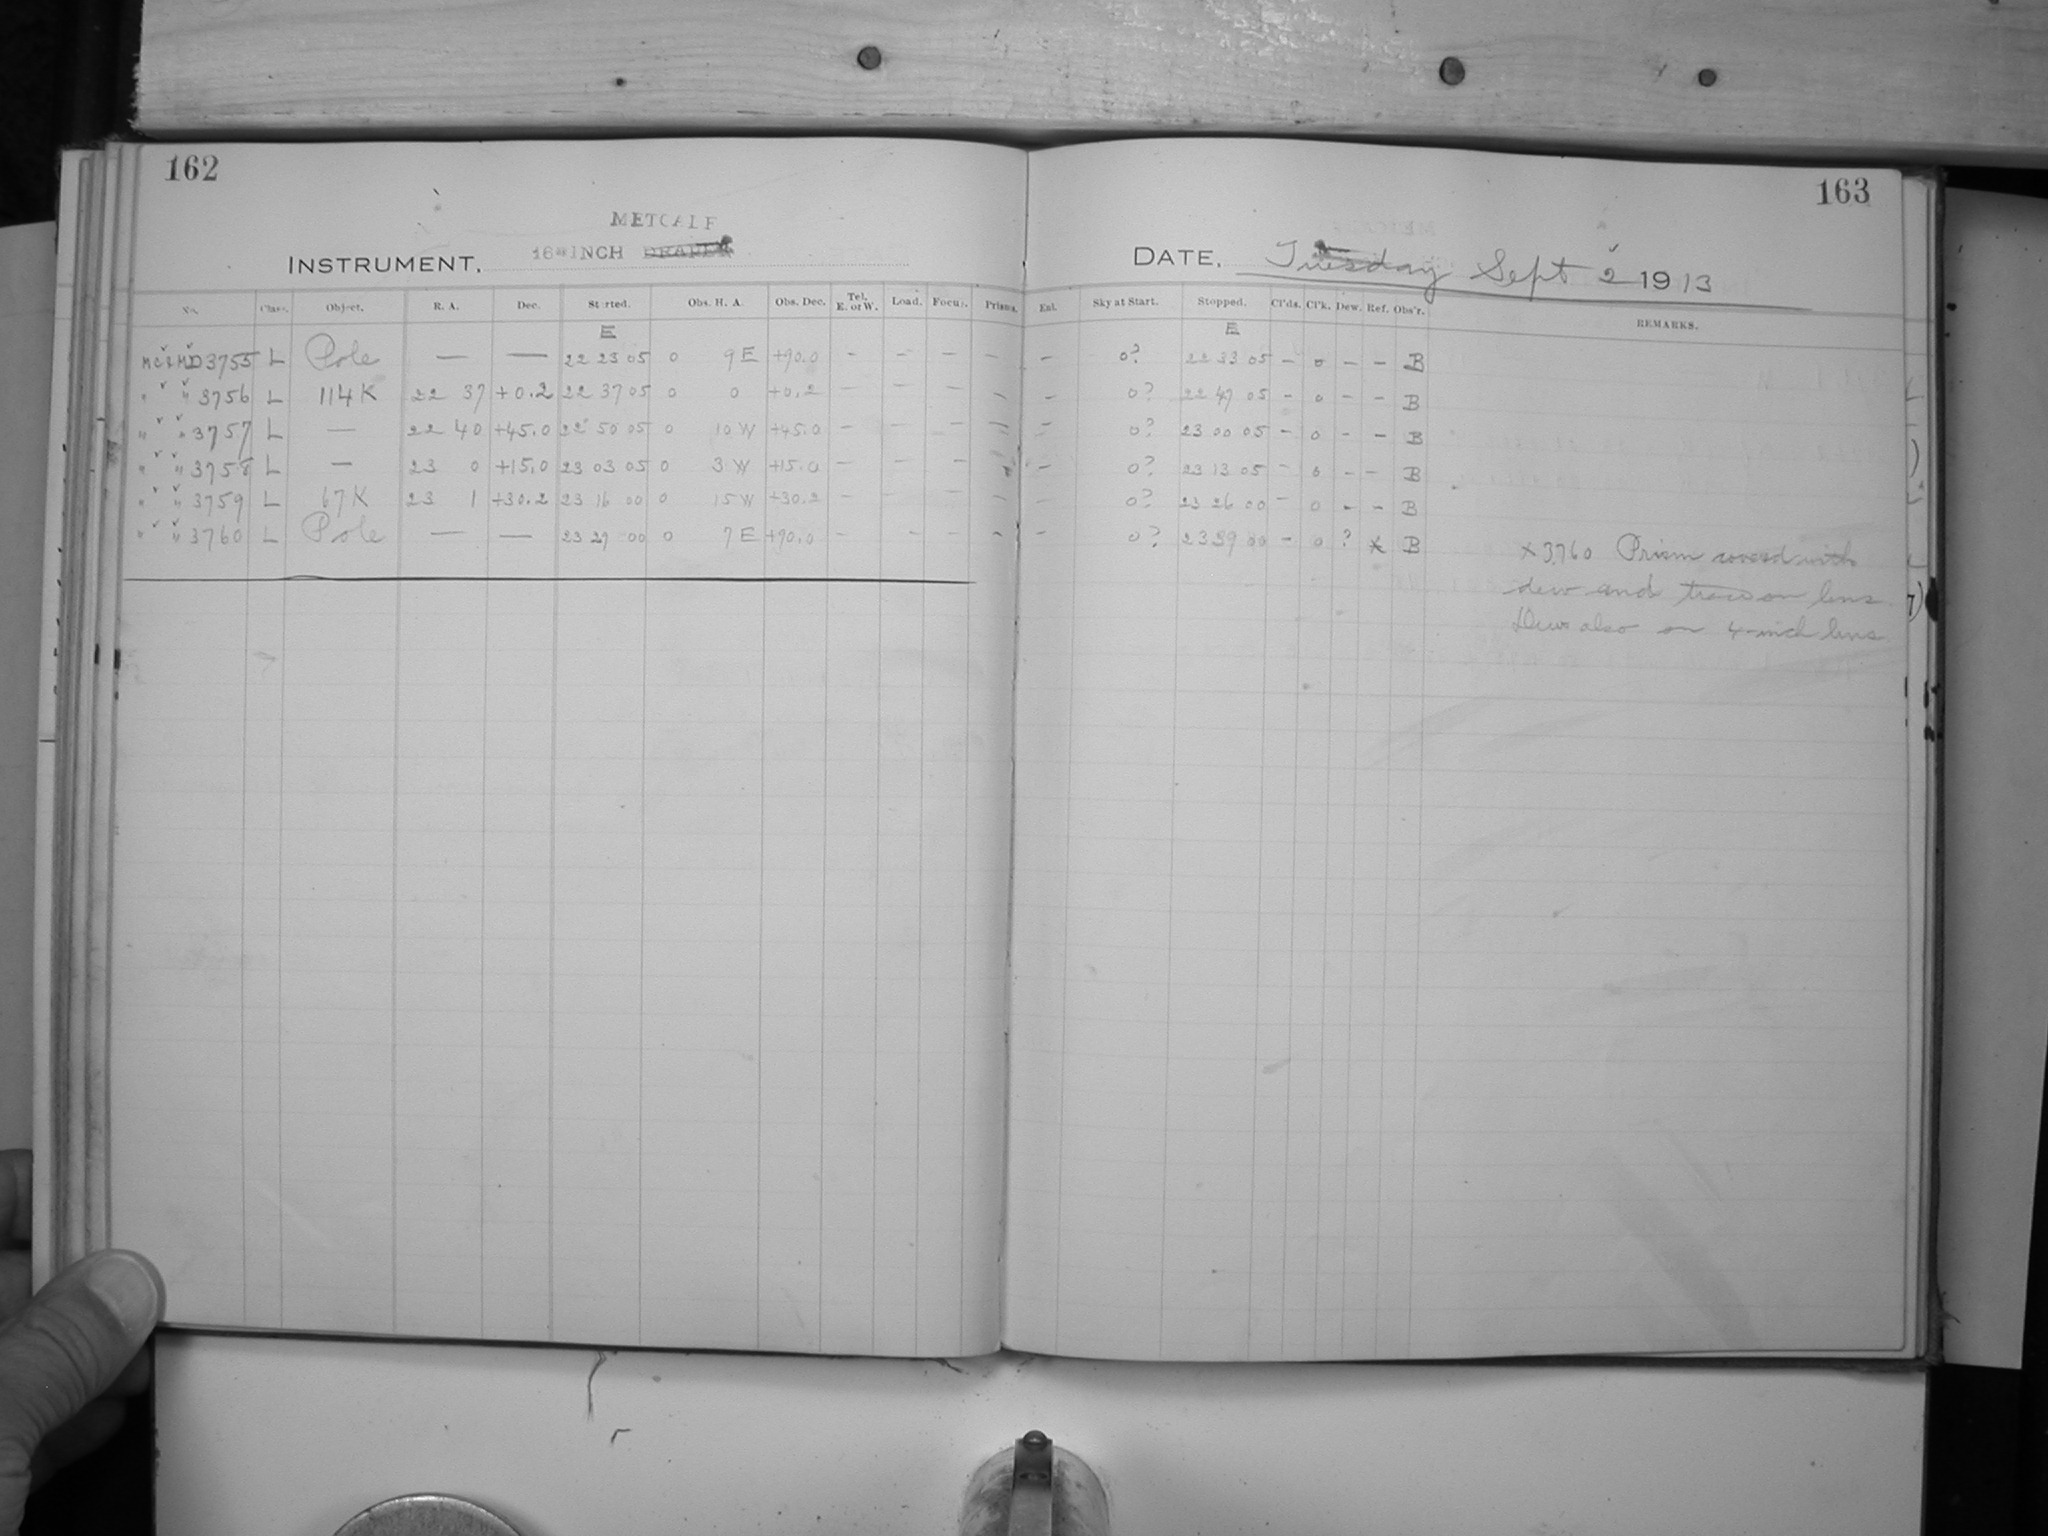 162
METCALF
INSTRUMENT, 16-INCH DRAPER
No. Class. Object. R. A. Dec. Started. Obs. H. A. Obs. Dec. Tel. E. or W. Load. Focus. Prisms.
E
3755 L Pole — — 22 23 05 0 9 E +90.0 - - - -
" " 3756 L 114K 22 37 +0.2 22 37 05 0 0 +0.2 - - - -
" " 3757 L — 22 40 +45.0 22 50 05 0 10 W +45.0 - - - -
" " 3758 L — 23 0 +15.0 23 03 05 0 3 W +15.0 - - -
" " 3759 L 67K 23 1 +30.2 23 16 00 0 15 W +30.2 - - - -
" " 3760 L Pole — — 23 29 00 0 7 E +90.0 - - - -
163
DATE, Tuesday Sept 2 1913
Enl. Sky at Start. Stopped. Cl'ds. Cl'k. Dew. Ref. Obs'r. REMARKS.
E
- 0? 22 33 05 - 0 - - B
- 0? 22 47 05 - 0 - - B
- 0? 23 00 05 - 0 - - B
- 0? 23 13 05 - 0 - - B
- 0? 23 26 00 - 0 - - B
- 0? 23 39 00 - 0 ? x B x 3760 Prism covered with
dew and trace on lens.
Dew also on 4-inch lens